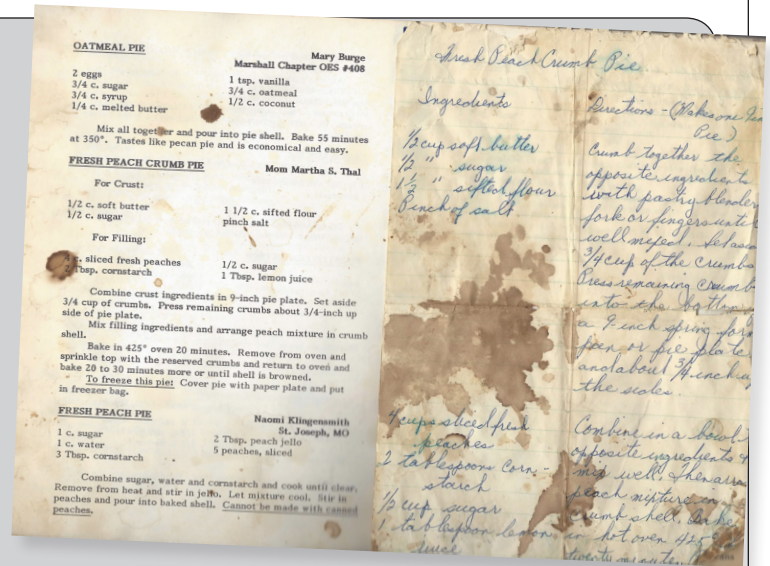 OATMEAL PIE
Mary Burge
Marshall Chapter OES #408
2 eggs
3/4 c. sugar
3/4 c. syrup
1/4 c. melted butter
1 tsp. vanilla
3/4 c. oatmeal
1/2 c. coconut
Mix all together and pour into pie shell. Bake 55 minutes
at 350°. Tastes like pecan pie and is economical and easy.
FRESH PEACH CRUMB PIE
Mom Martha S. Thal
For Crust:
1/2 c. soft butter
1/2 c. sugar
1 1/2 c. sifted flour
pinch salt
For Filling:
c. sliced fresh peaches
2 Tbsp. cornstarch
1/2 c. sugar
1 Tbsp. lemon juice
Combine crust ingredients in 9-inch pie plate. Set aside
3/4 cup of crumbs. Press remaining crumbs about 3/4-inch up
side of pie plate.
Mix filling ingredients and arrange peach mixture in crumb
shell.
Bake in 425° oven 20 minutes. Remove from oven and
sprinkle top with the reserved crumbs and return to oven and
bake 20 to 30 minutes more or until shell is browned.
To freeze this pie: Cover pie with paper plate and put
in freezer bag.
FRESH PEACH PIE
Naomi Klingensmith
St. Joseph, MO
1 c. sugar
1 c. water
3 Tbsp. cornstarch
2 Tbsp. peach jello
5 peaches, sliced
Combine sugar, water and cornstarch and cook until clear.
Remove from heat and stir in jello. Let mixture cool. Stir in
peaches and pour into baked shell. Cannot be made with canned
peaches.
Fresh Peach Crumb Pie
Ingredients
1/2 cup soft butter
1/2 " sugar
1 1/2 " sifted flour
Pinch of salt
4 cups sliced fresh
peaches
2 tablespoons corn-
starch
1/2 cup sugar
1 tablespoon lemon
juice
Directions - (Makes one
Pie)
Crumb together the
opposite ingredients
with pastry blender
fork or fingers until
well mixed. Set aside
3/4 cup of the crumbs
Press remaining crumbs
into the bottom
a 9-inch spring form
pan or pie plate
and about 3/4 inch up
the sides.
Combine in a bowl
opposite ingredients &
mix well. Then arrange
peach mixture in
crumb shell. Bake
in hot oven 425°
twenty minute